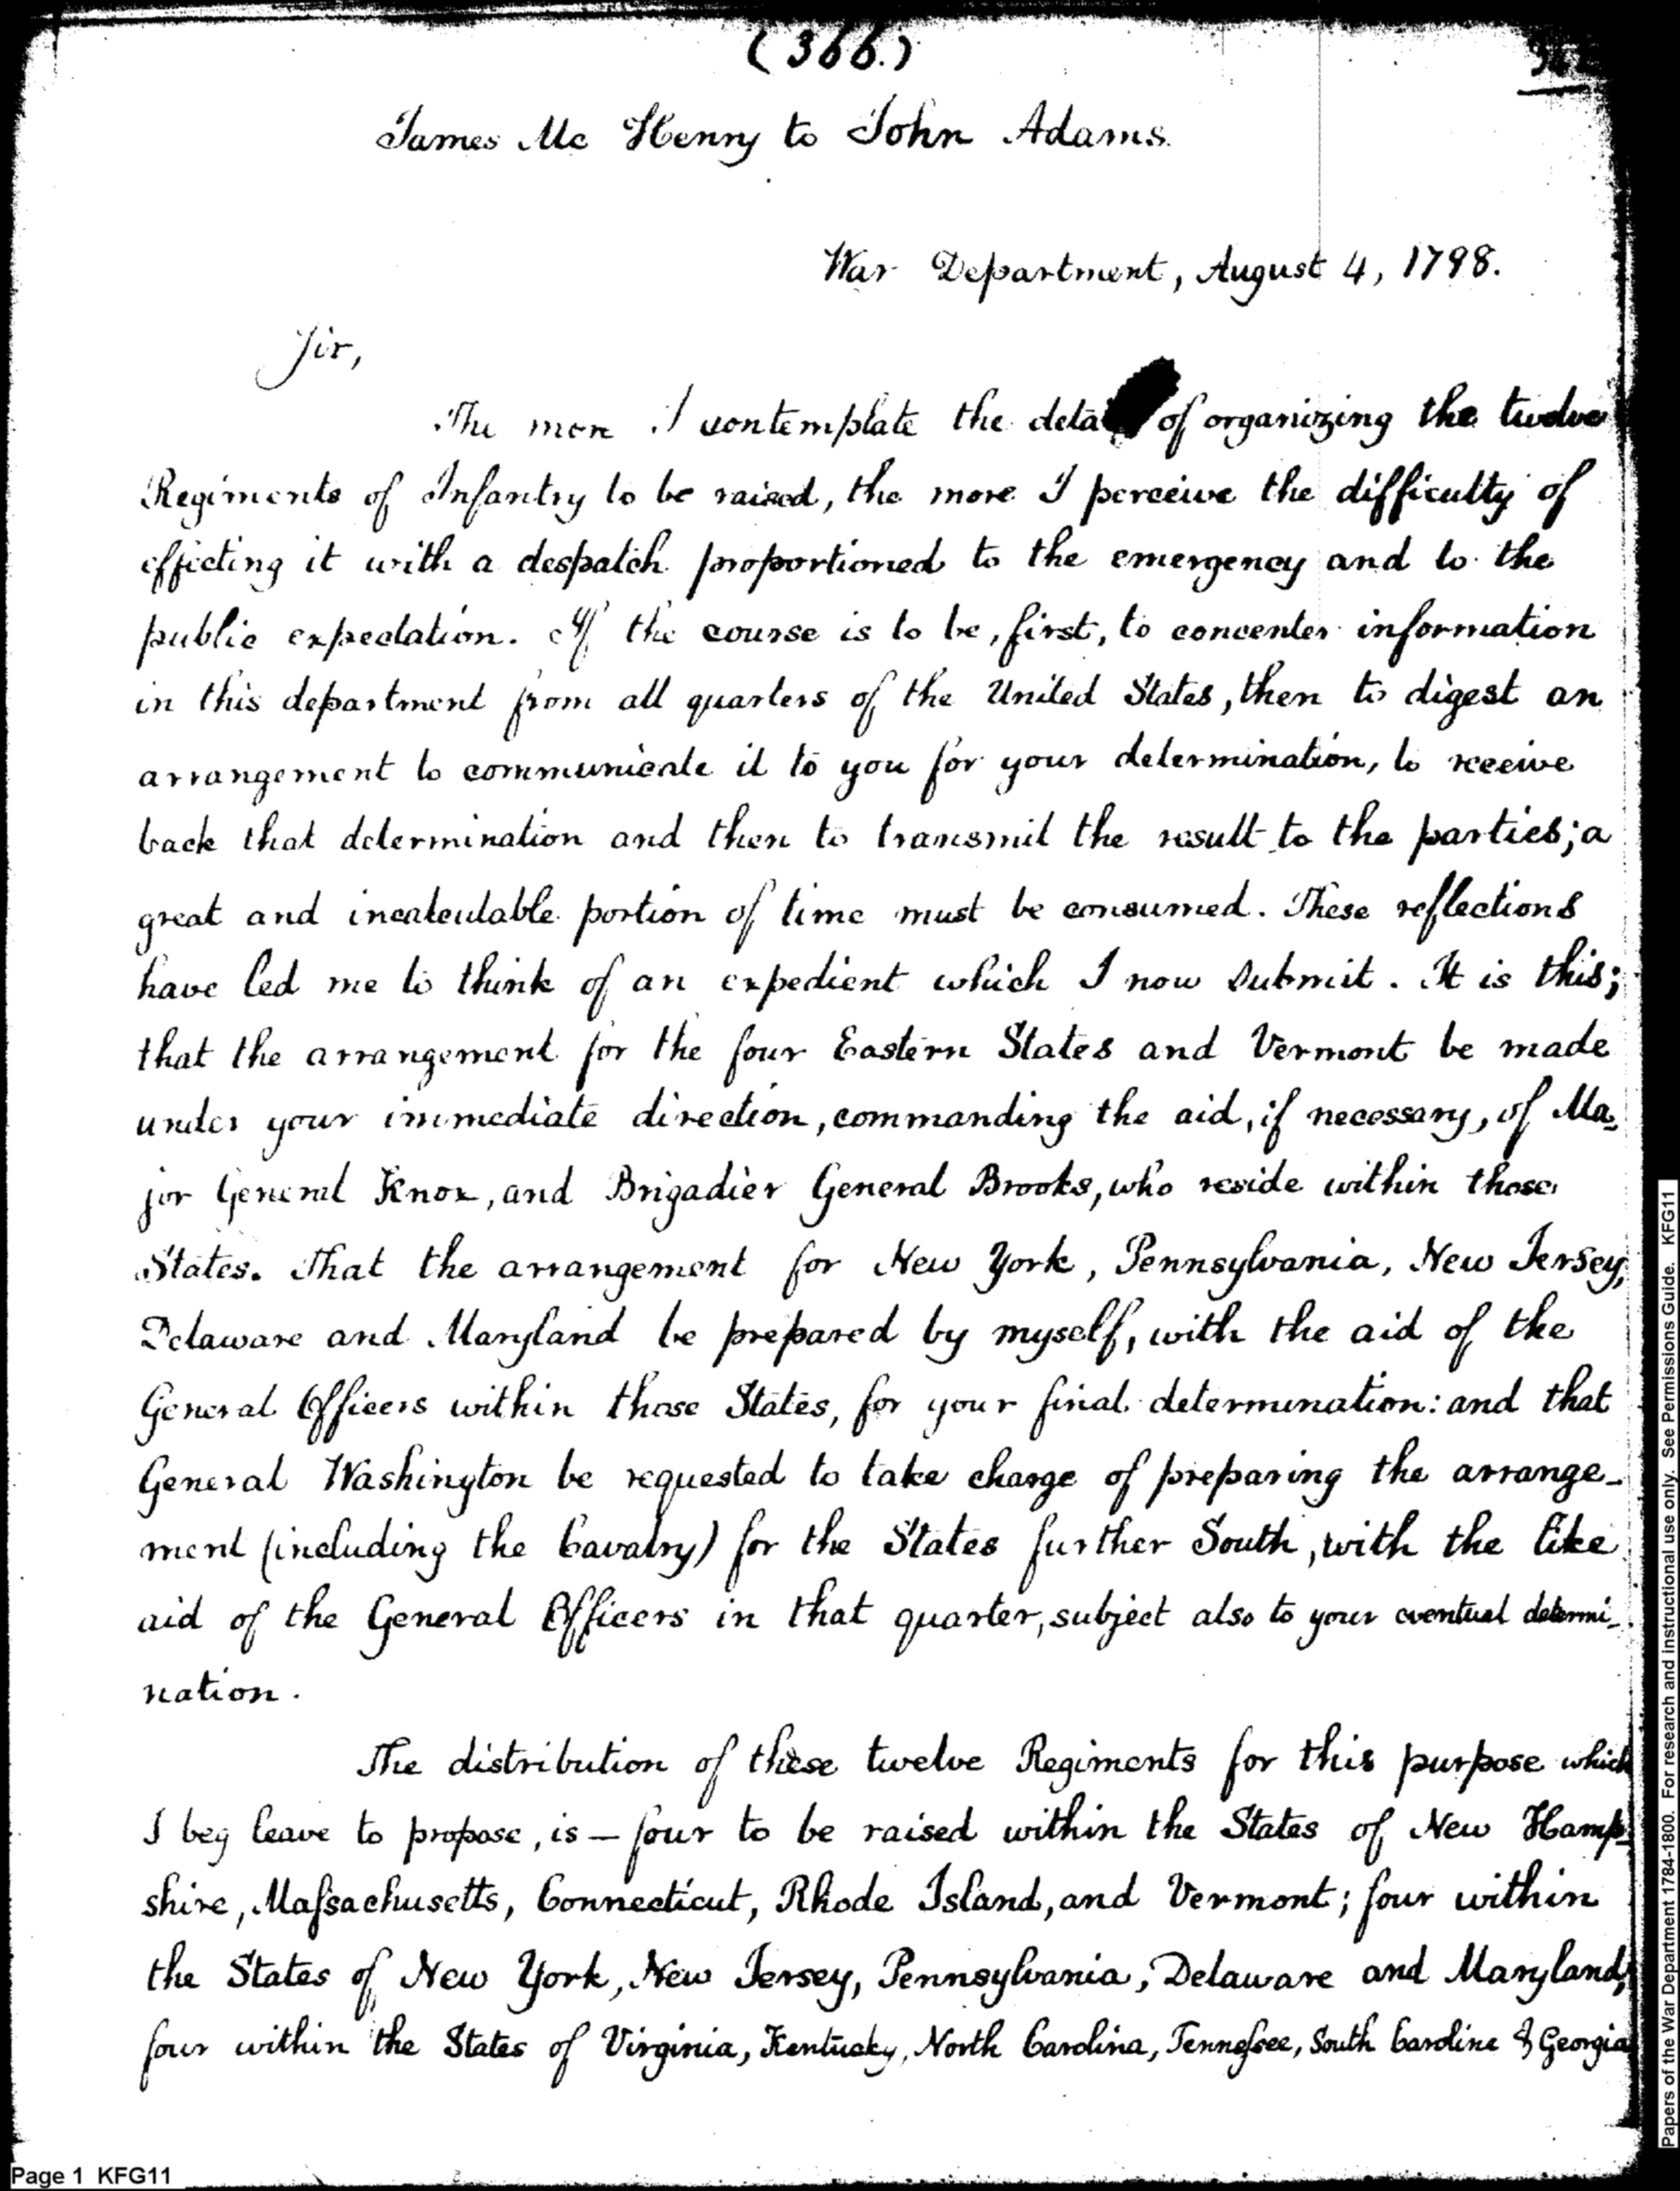 (366.)
James Mc Henry to John Adams.
War Department, August 4, 1798.
Sir,
The more I contemplate the of organizing the twelve
Regiments of Infantry to be raised, the more I perceive the difficulty of
effecting it with a despatch proportioned to the emergency and to the
public expectation. If the course is to be, first, to concenter information
in this department from all quarters of the United States, then to digest an
arrangement to communicate it to you for your determination, to receive
back that determination and then to transmit the result to the parties; a
great and incalculable portion of time must be consumed. These reflections
have led me to think of an expedient which I now submit. It is this;
that the arrangement for the four Eastern States and Vermont be made
under your immediate direction, commanding the aid, if necessary, of Ma-
jor General Knox, and Brigadier General Brooks, who reside within those
States. That the arrangement for New York, Pennsylvania, New Jersey,
Delaware and Maryland be prepared by myself, with the aid of the
General Officers within those States, for your final determination: and that
General Washington be requested to take charge of preparing the arrange-
ment (including the Cavalry) for the States further South, with the like
aid of the General Officers in that quarter, subject also to your eventual determi-
nation.
The distribution of these twelve Regiments for this purpose which
I beg leave to propose, is — four to be raised within the States of New Hamp-
shire, Massachusetts, Connecticut, Rhode Island, and Vermont; four within
the States of New York, New Jersey, Pennsylvania, Delaware and Maryland;
four within the States of Virginia, Kentucky, North Carolina, Tennessee, South Caroline & Georgia
Page 1 KFG11
Papers of the War Department 1784-1800. For research and instructional use only. See Permissions Guide. KFG11